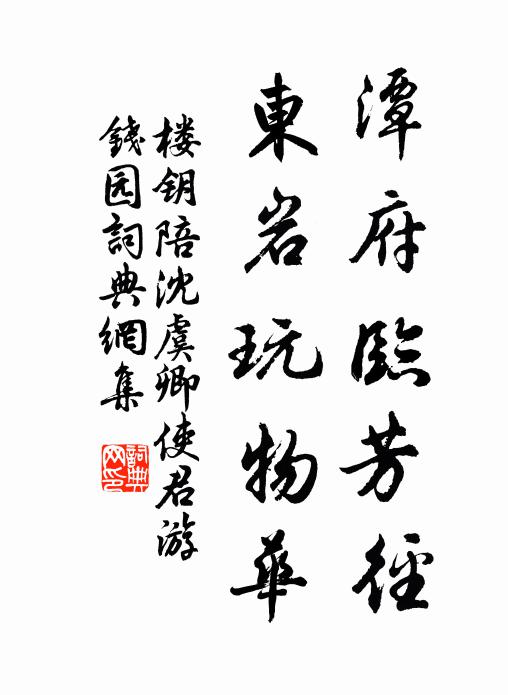 潭府臨芳徑
東岩玩物華
楼钥陪沈虞卿使君游
錢园詞典網集
詞典网印